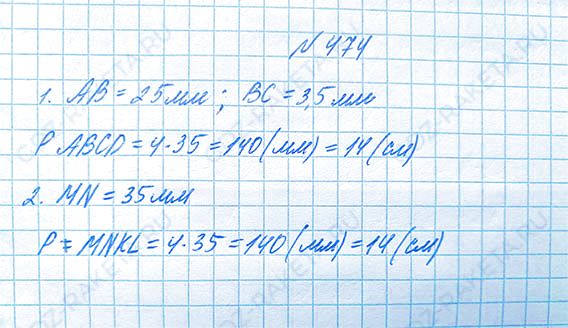 N 474
1. AB = 25мм; BC = 3,5мм
P ABCD = 4·35 = 140(мм) = 14(см)
2. MN = 35мм
P = MNKL = 4·35 = 140(мм) = 14(см)